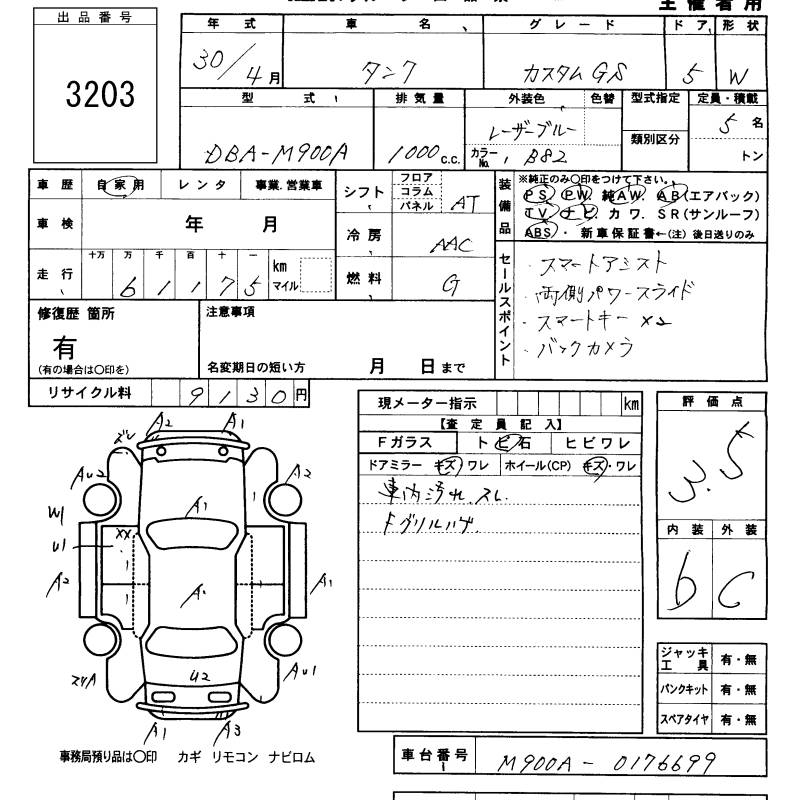 主催者用
出品番号
3203
年 式 車 名 グレード ドア 形状
30/4月 タンク カスタムGS 5 W
型 式 排気量 外装色 色替 型式指定 定員・積載
DBA-M900A 1000c.c. レーザーブルー 5名
カラーNo. B82 類別区分 トン
車歴 自家用 レンタ 事業.営業車
車検 年 月
走行 十万 万 千 百 十 一
61175 km マイル
シフト フロア コラム パネル AT
冷房 AAC
燃料 G
装備品 ※純正のみ○印をつけて下さい。
PS PW. 純AW. AB(エアバック)
TV ナビ カワ. SR(サンルーフ)
ABS・ 新車保証書←(注)後日送りのみ
セールスポイント
・スマートアシスト
・両側パワースライド
・スマートキー×2
・バックカメラ
修復歴 箇所
有
(有の場合は○印を)
注意事項
名変期日の短い方 月 日まで
リサイクル料 9130円
現メーター指示 km
【査定員記入】
Fガラス トビ石 ヒビワレ
ドアミラー キズ・ワレ ホイール(CP) キズ・ワレ
車内汚れ.スレ.
Fグリルハゲ
評価点
3.5
内装 外装
b C
ジャッキ工具 有・無
パンクキット 有・無
スペアタイヤ 有・無
A2 A1
AU2 A2
A1
W1
U1 XX
A2 A1
U2
AU1
A1 A3
事務局預り品は○印 カギ リモコン ナビロム
車台番号 M900A-0176699